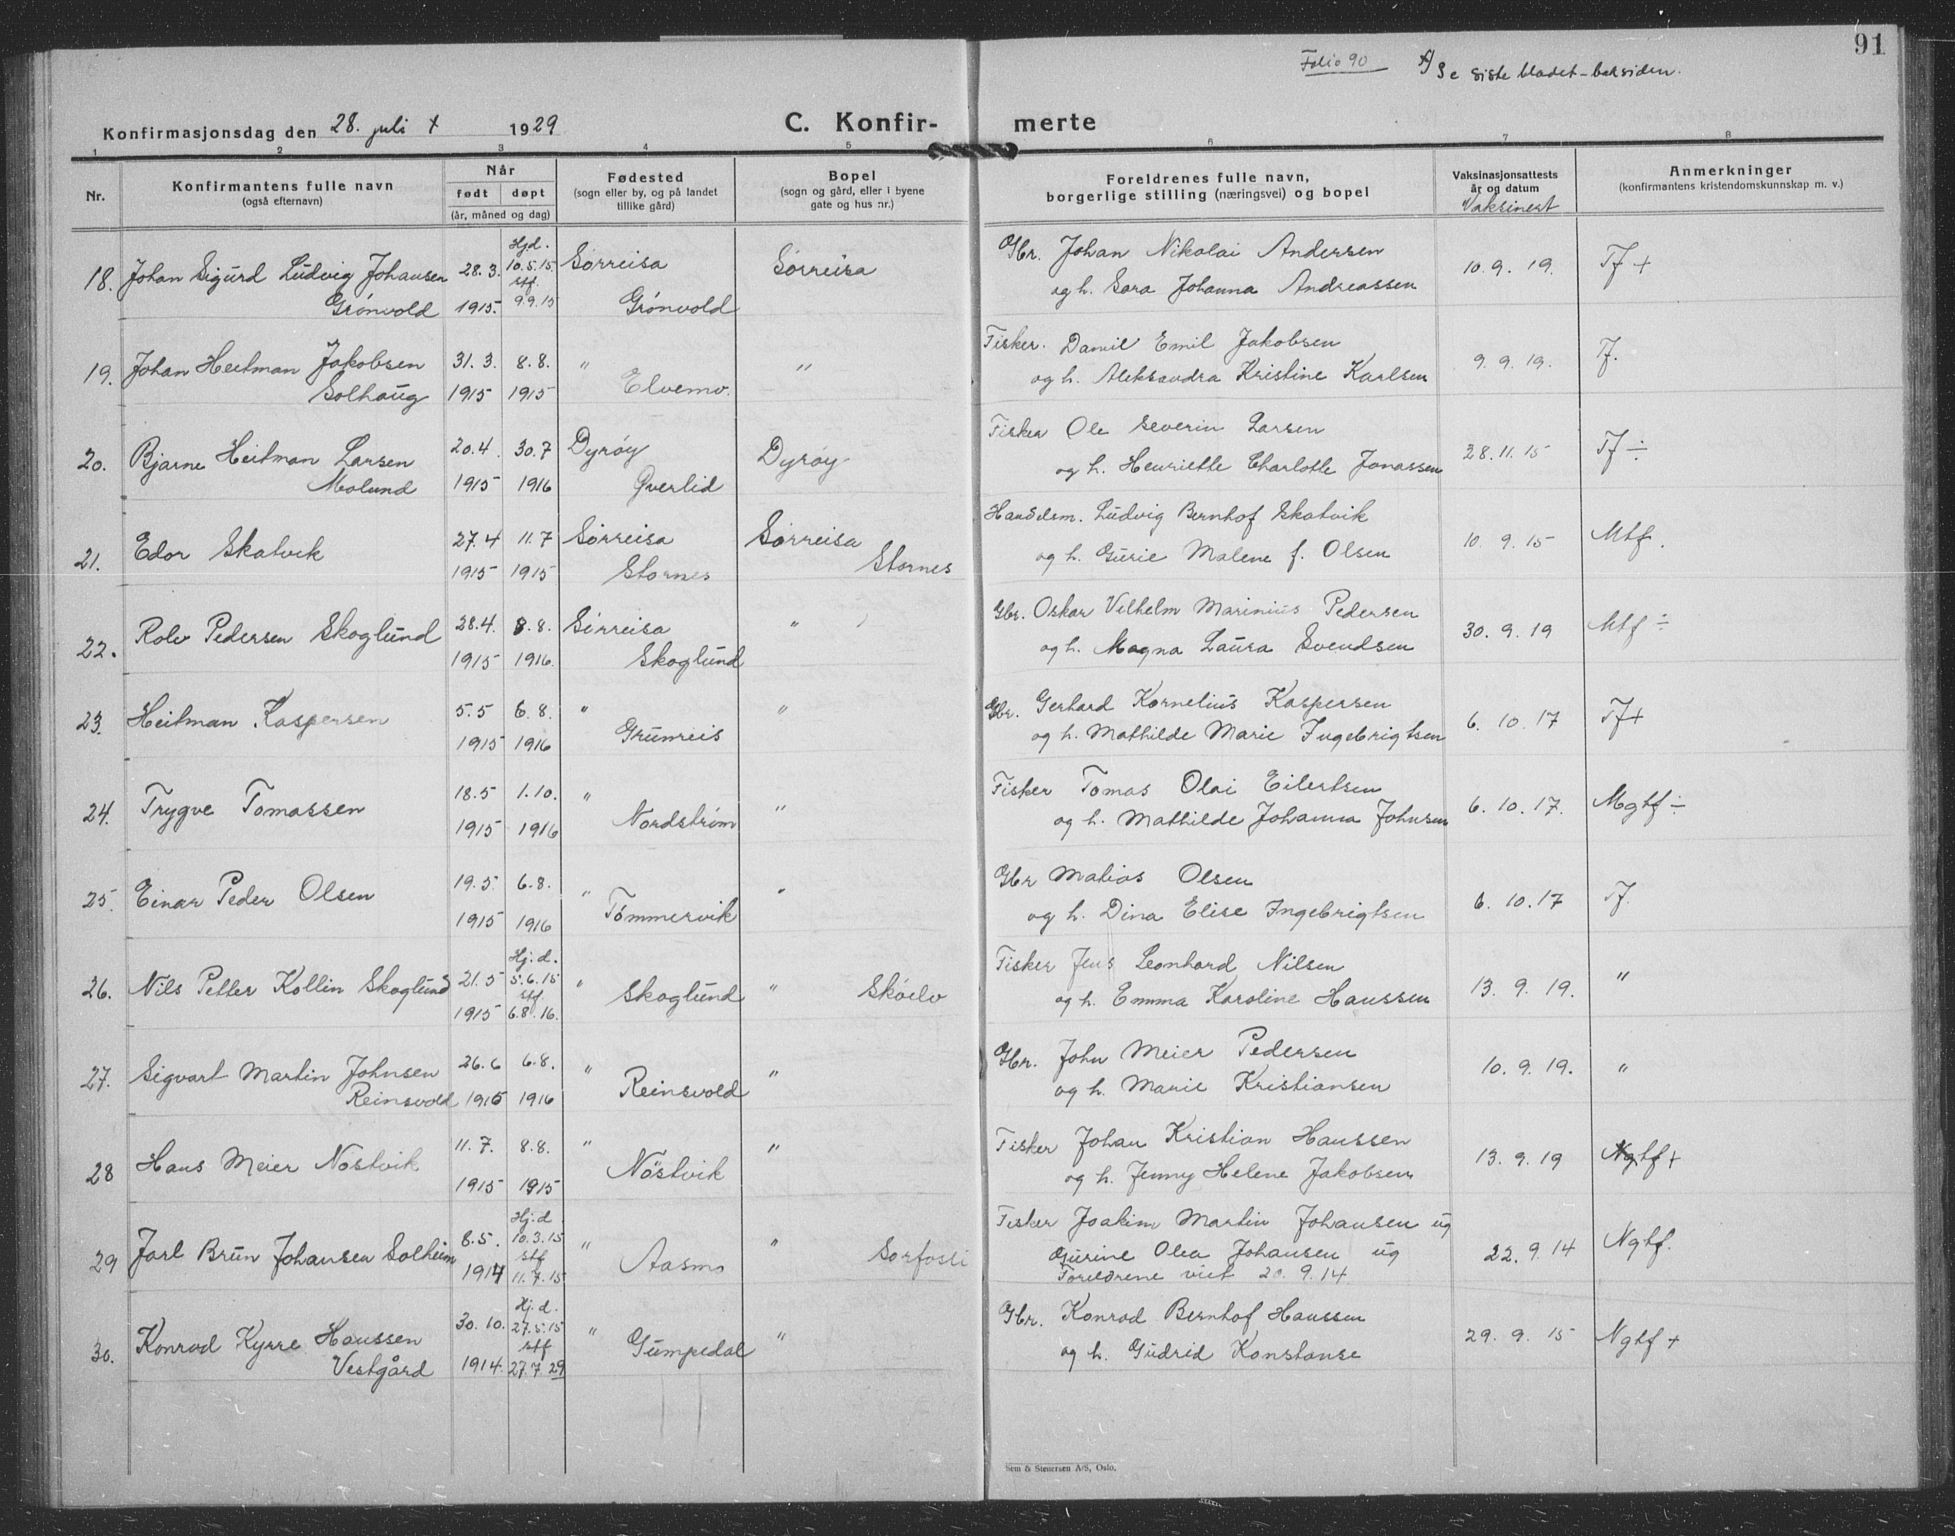 91
Folio 90 x) Se siste bladet - baksiden.
Konfirmasjonsdag den 28. juli x 1929
C. Konfir- merte
1 2 3 4 5 6 7 8
Nr. Konfirmantens fulle navn (også efternavn) Når født døpt (år, måned og dag) Fødested (sogn eller by, og på landet tillike gård) Bopel (sogn og gård, eller i byene gate og hus nr.) Foreldrenes fulle navn, borgerlige stilling (næringsvei) og bopel Vaksinasjonsattests år og datum Vaksinert Anmerkninger (konfirmantens kristendomskunnskap m. v.)
18. Johan Sigurd Ludvig Johansen 28.3. Hjd. 10.5.15. stf. Sørreisa Sørreisa Gbr. Johan Nikolai Andersen 10.9.19. Tf +
Grønvold 1915. 9.9.15 Grønvold og h. Sara Johanna Andreassen
19. Johan Heitman Jakobsen 31.3. 8.8. " " Fisker. Daniel Emil Jakobsen 9.9.19. Tf.
Solhaug 1915 1915 Elvemo. og h. Aleksandra Kristine Karlsen
20. Bjarne Heitman Larsen 20.4. 30.7 Dyrøy Dyrøy Fisker Ole Severin Larsen 28.11.15 Tf ÷
Molund 1915 1916 Gverlid og h. Henriette Charlotte Jonassen
21. Edor Skatvik 27.4 11.7 Sørreisa Sørreisa Handelsm. Ludvig Bernhof Skatvik 10.9.15 Mtf.
1915 1915 Stornes Stornes og h. Gurie Malene f. Olsen
22. Rolv Pedersen Skoglund 28.4. 8.8. Sørreisa " Gbr. Oskar Vilhelm Marinius Pedersen 30.9.19 Mtf ÷
1915 1916. Skoglund og h. Magna Laura Svendsen
23. Heitman Kaspersen 5.5 6.8. " " Gbr. Gerhard Kornelius Kaspersen 6.10.17 Tf+
1915 1916 Grunreis og h. Mathilde Marie Ingebrigtsen
24. Trygve Tomassen 18.5 1.10. " " Fisker Tomas Olai Eilertsen 6.10.17. Mgtf ÷
1915 1916 Nordstrøm og h. Mathilde Johanna Johnsen
25. Einar Peder Olsen 19.5. 6.8. " " Gbr Matias Olsen 6.10.17 Tf.
1915 1916 Tømmervik og h. Dina Elise Ingebrigtsen
26. Nils Petter Kollin Skoglund 21.5 Hj.d. 5.6.15 stf " Skoglund " Skøelv Fisker Jens Leonhard Nilsen 13.9.19. "
1915 6.8.16. og h. Emma Karoline Hanssen
27. Sigvart Martin Johnsen 26.6 6.8. " " Gbr. John Meier Pedersen 10.9.19. "
Reinsvold 1915 1916 Reinsvold og h. Marie Kristiansen
28 Hans Meier Nøstvik 11.7. 8.8. " " Fisker Johan Kristian Hanssen 13.9.19 Ngtf+
1915 1915 Nøstvik og h. Jenny Helene Jakobsen
29 Jarl Brun Johansen Solheim 8.5. Hj.d. 10.3.15 stf " " Sørfosli Fisker Joakim Martin Johansen ug 22.9.14 Ngtf.
1914 11.7.15 Aasmo Gurine Olea Johansen ug
Foreldrene viet 20.9.14
30. Konrad Kyrre Hanssen 30.10. Hj.d. 27.5.15 stf " " Gbr. Konrad Bernhof Hanssen 29.9.15 Ngtf +
Vestgård 1914. 27.7.29 Gumpedal og h. Gudrid Konstanse
Sem & Stenersen A/S, Oslo.